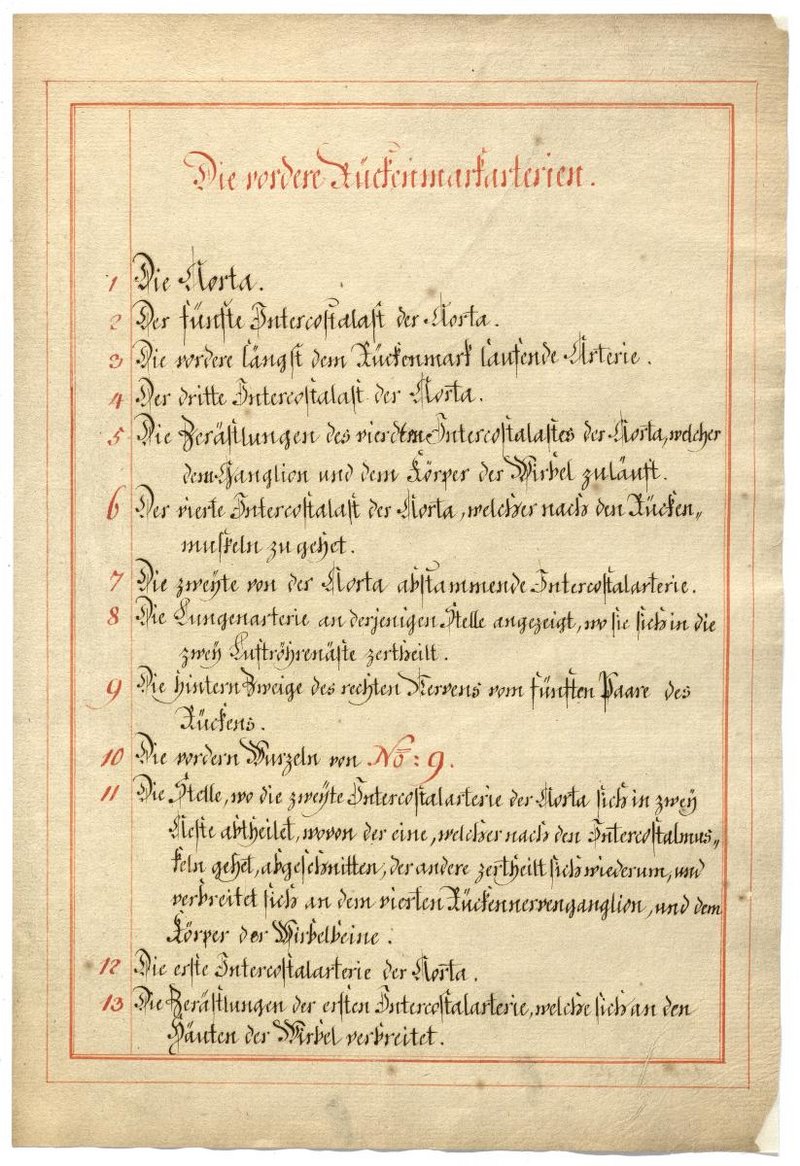 Die vordere Rückenmarkarterien.
1 Die Aorta.
2 Der fünfte Intercostalast der Aorta.
3 Die vordere längst dem Rückenmark laufende Arterie.
4 Der dritte Intercostalast der Aorta.
5 Die Zerästlungen des vierdten Intercostalastes der Aorta, welcher
dem Ganglion und dem Körper der Wirbel zuläuft.
6 Der vierte Intercostalast der Aorta, welcher nach den Rücken„
muskeln zu gehet.
7 Die zweÿte von der Aorta abstammende Intercostalarterie.
8 Die Lungenarterie an derjenigen Stelle angezeigt, wo sie sich in die
zweÿ Luftröhrenäste zertheilt.
9 Die hintern Zweige des rechten Nervens vom fünften Paare des
Rückens.
10 Die vordern Wurzeln von No: 9.
11 Die Stelle, wo die zweÿte Intercostalarterie der Aorta sich in zweÿ
Aeste abtheilet, wovon der eine, welcher nach den Intercostalmus„
keln gehet, abgeschnitten, der andere zertheilt sich wiederum, und
verbreitet sich an dem vierten Rückennervenganglion, und dem
Körper der Wirbelbeine.
12 Die erste Intercostalarterie der Aorta.
13 Die Zerästlungen der ersten Intercostalarterie, welche sich an den
Häuten der Wirbel verbreitet.